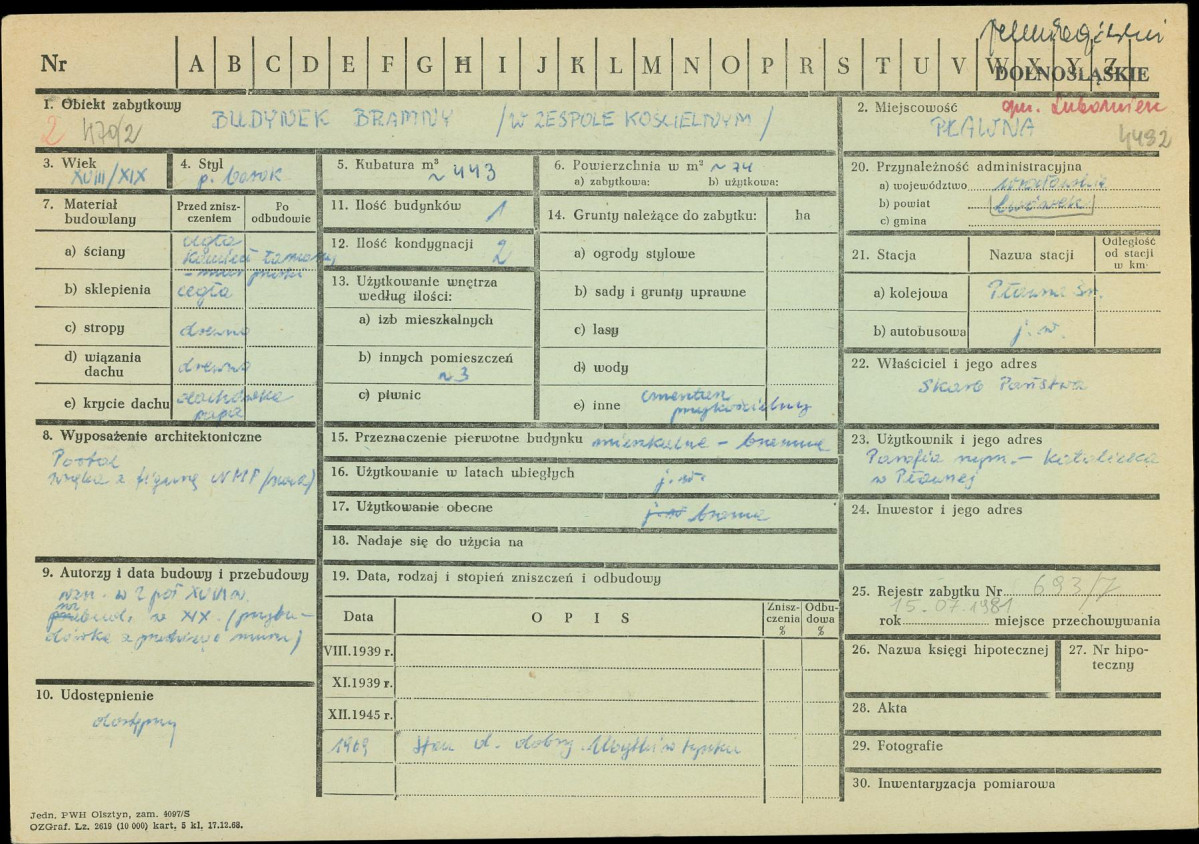 Jeleniogórski
Nr A B C D E F G H I J K L M N O P R S T U V W X Y Z
DOLNOŚLĄSKIE
1. Obiekt zabytkowy
2 470/2
BUDYNEK BRAMNY /W ZESPOLE KOŚCIELNYM/
2. Miejscowość gm. Lubomierz
PŁAWNA
4492
3. Wiek
XVIII/XIX
4. Styl
p. barok
5. Kubatura m³
~ 443
6. Powierzchnia w m² ~ 74
a) zabytkowa: b) użytkowa:
7. Materiał budowlany
Przed zniszczeniem
Po odbudowie
a) ściany
cegła
kamień łamany
b) sklepienia
cegła
c) stropy
drewno
d) wiązania dachu
drewno
e) krycie dachu
dachówka
papa
8. Wyposażenie architektoniczne
Portal
wnęka z figurą NMP
9. Autorzy i data budowy i przebudowy
wzn. w 2 poł XVIII w.
w XIX. (przybudówka z
muru)
10. Udostępnienie
dostępny
11. Ilość budynków
1
12. Ilość kondygnacji
2
13. Użytkowanie wnętrza
według ilości:
a) izb mieszkalnych
b) innych pomieszczeń
~ 3
c) piwnic
14. Grunty należące do zabytku:
ha
a) ogrody stylowe
b) sady i grunty uprawne
c) lasy
d) wody
e) inne cmentarz
przykościelny
15. Przeznaczenie pierwotne budynku mieszkalne - brama
16. Użytkowanie w latach ubiegłych
j.w.
17. Użytkowanie obecne
j.w. brama
18. Nadaje się do użycia na
19. Data, rodzaj i stopień zniszczeń i odbudowy
Data
O P I S
Zniszczenia %
Odbudowa %
VIII.1939 r.
XI.1939 r.
XII.1945 r.
1969 Stan d. dobry.
20. Przynależność administracyjna
a) województwo wrocławskie
b) powiat Lwówek
c) gmina
21. Stacja
Nazwa stacji
Odległość od stacji w km
a) kolejowa Pławna Śr.
b) autobusowa j.w.
22. Właściciel i jego adres
Skarb Państwa
23. Użytkownik i jego adres
Parafia rzym. - katolicka
w Pławnej
24. Inwestor i jego adres
25. Rejestr zabytku Nr 693/7
15.07.1981
rok miejsce przechowywania
26. Nazwa księgi hipotecznej
27. Nr hipoteczny
28. Akta
29. Fotografie
30. Inwentaryzacja pomiarowa
Jedn. PWH Olsztyn, zam. 4097/S
OZGraf. Lz. 2619 (10 000) kart. 5 kl. 17.12.68.